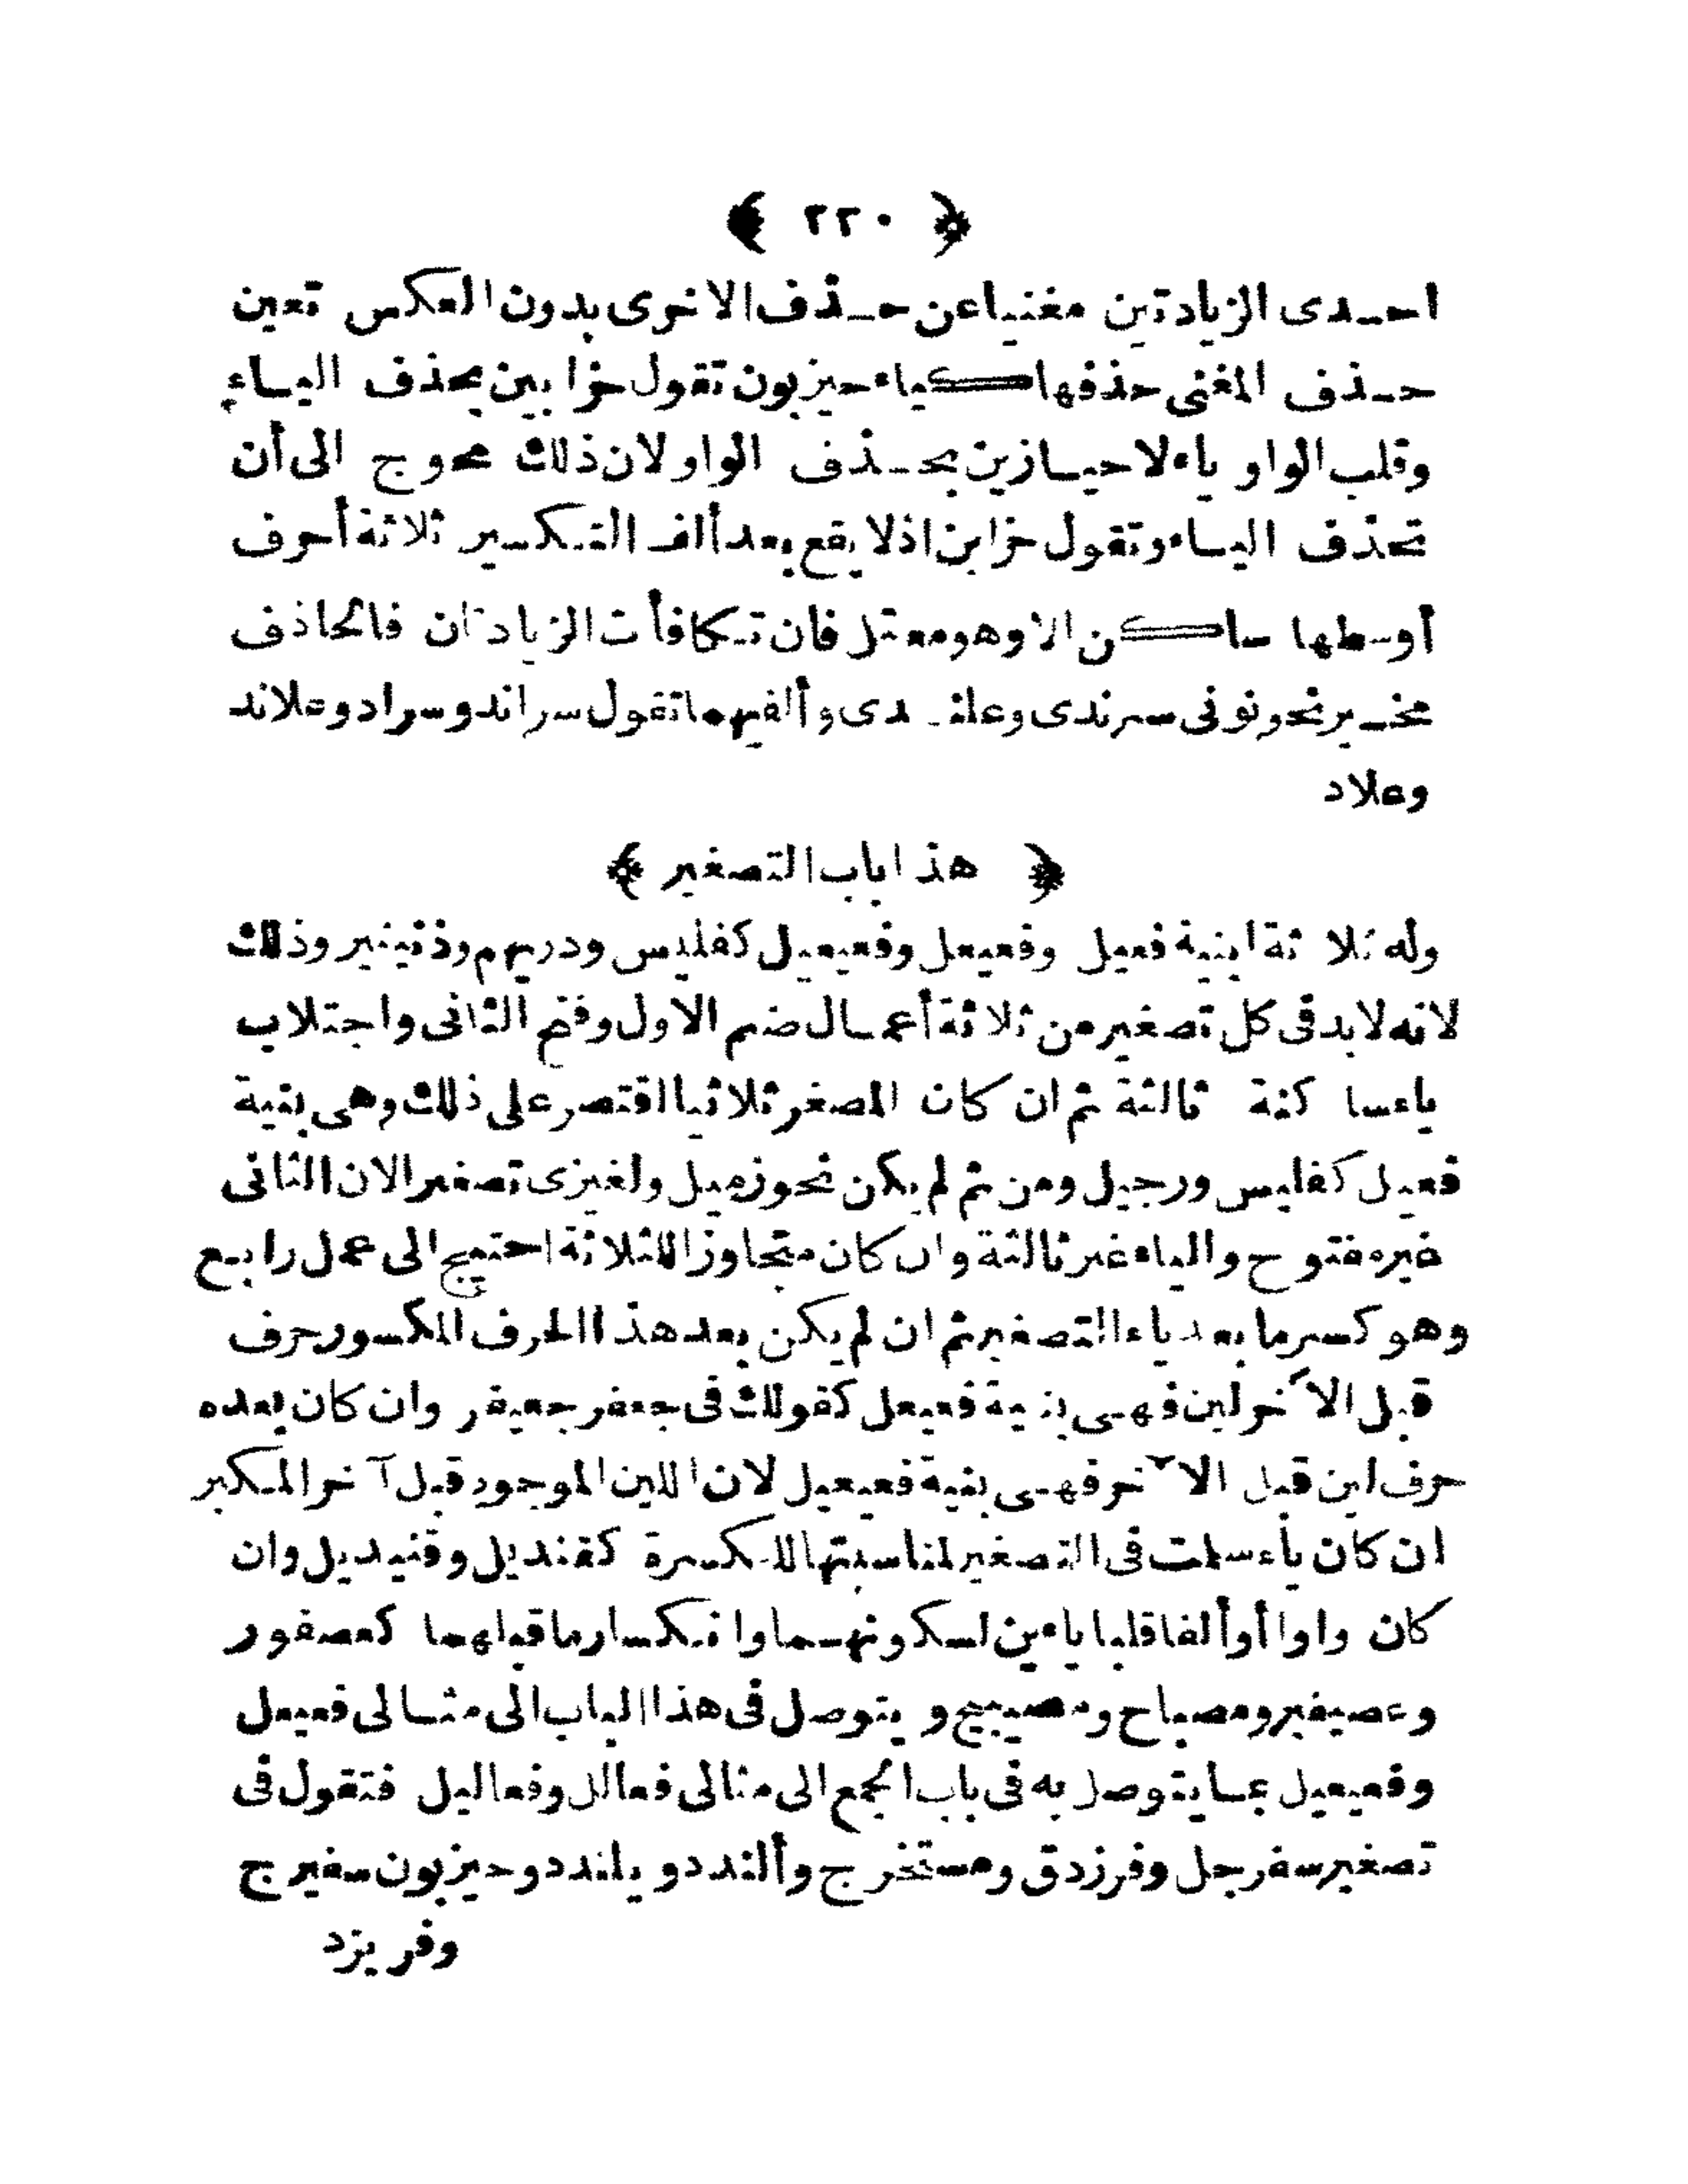 ﴿ ٢٢٠ ﴾
احدى الزيادتين مغنيا عن حذف الاخرى بدون العكس تعين
حذف المغنى حذفها كياء حيزبون تقول حزابين بحذف الياء
وقلب الواو ياء لا حيازين بحذف الواو لان ذلك محوج الى أن
تحذف الياء وتقول حزابن اذ لا يقع بعد ألف التكسير ثلاثة أحرف
أوسطها ساكن الا وهو معتل فان تكافأت الزيادتان فالحاذف
مخير نحو نونى سرندى وعلندى وألفيهما تقول سراند وسراد وعلاند
وعلاد
﴿ هذا باب التصغير ﴾
وله ثلاثة ابنية فعيل وفعيعل وفعيعيل كفليس ودريهم ودنينير وذلك
لانه لابد فى كل تصغير من ثلاثة أعمال ضم الاول وفتح الثانى واجتلاب
ياء ساكنة ثالثة ثم ان كان المصغر ثلاثيا اقتصر على ذلك وهى بنية
فعيل كفليس ورجيل ومن ثم لم يكن نحو زميل ولغيزى تصغيرا لان الثانى
غير مفتوح والياء غير ثالثة وان كان متجاوزا للثلاثة احتيج الى عمل رابع
وهو كسر ما بعد ياء التصغير ثم ان لم يكن بعد هذا الحرف المكسور حرف
قبل الآخر لين فهى بنية فعيعل كقولك فى جعفر جعيفر وان كان بعده
حرف لين قبل الآخر فهى بنية فعيعيل لان اللين الموجود قبل آخر المكبر
ان كان ياء سلمت فى التصغير لمناسبتها للكسرة كقنديل وقنيديل وان
كان واوا أو ألفا قلبا ياءين لسكونهما وانكسار ما قبلهما كعصفور
وعصيفير ومصباح ومصيبيح ويتوصل فى هذا الباب الى مثالى فعيعل
وفعيعيل بما يتوصل به فى باب الجمع الى مثالى فعالل وفعاليل فتقول فى
تصغير سفرجل وفرزدق ومستخرج وألندد ويلندد وحيزبون سفيرج
وفريزد